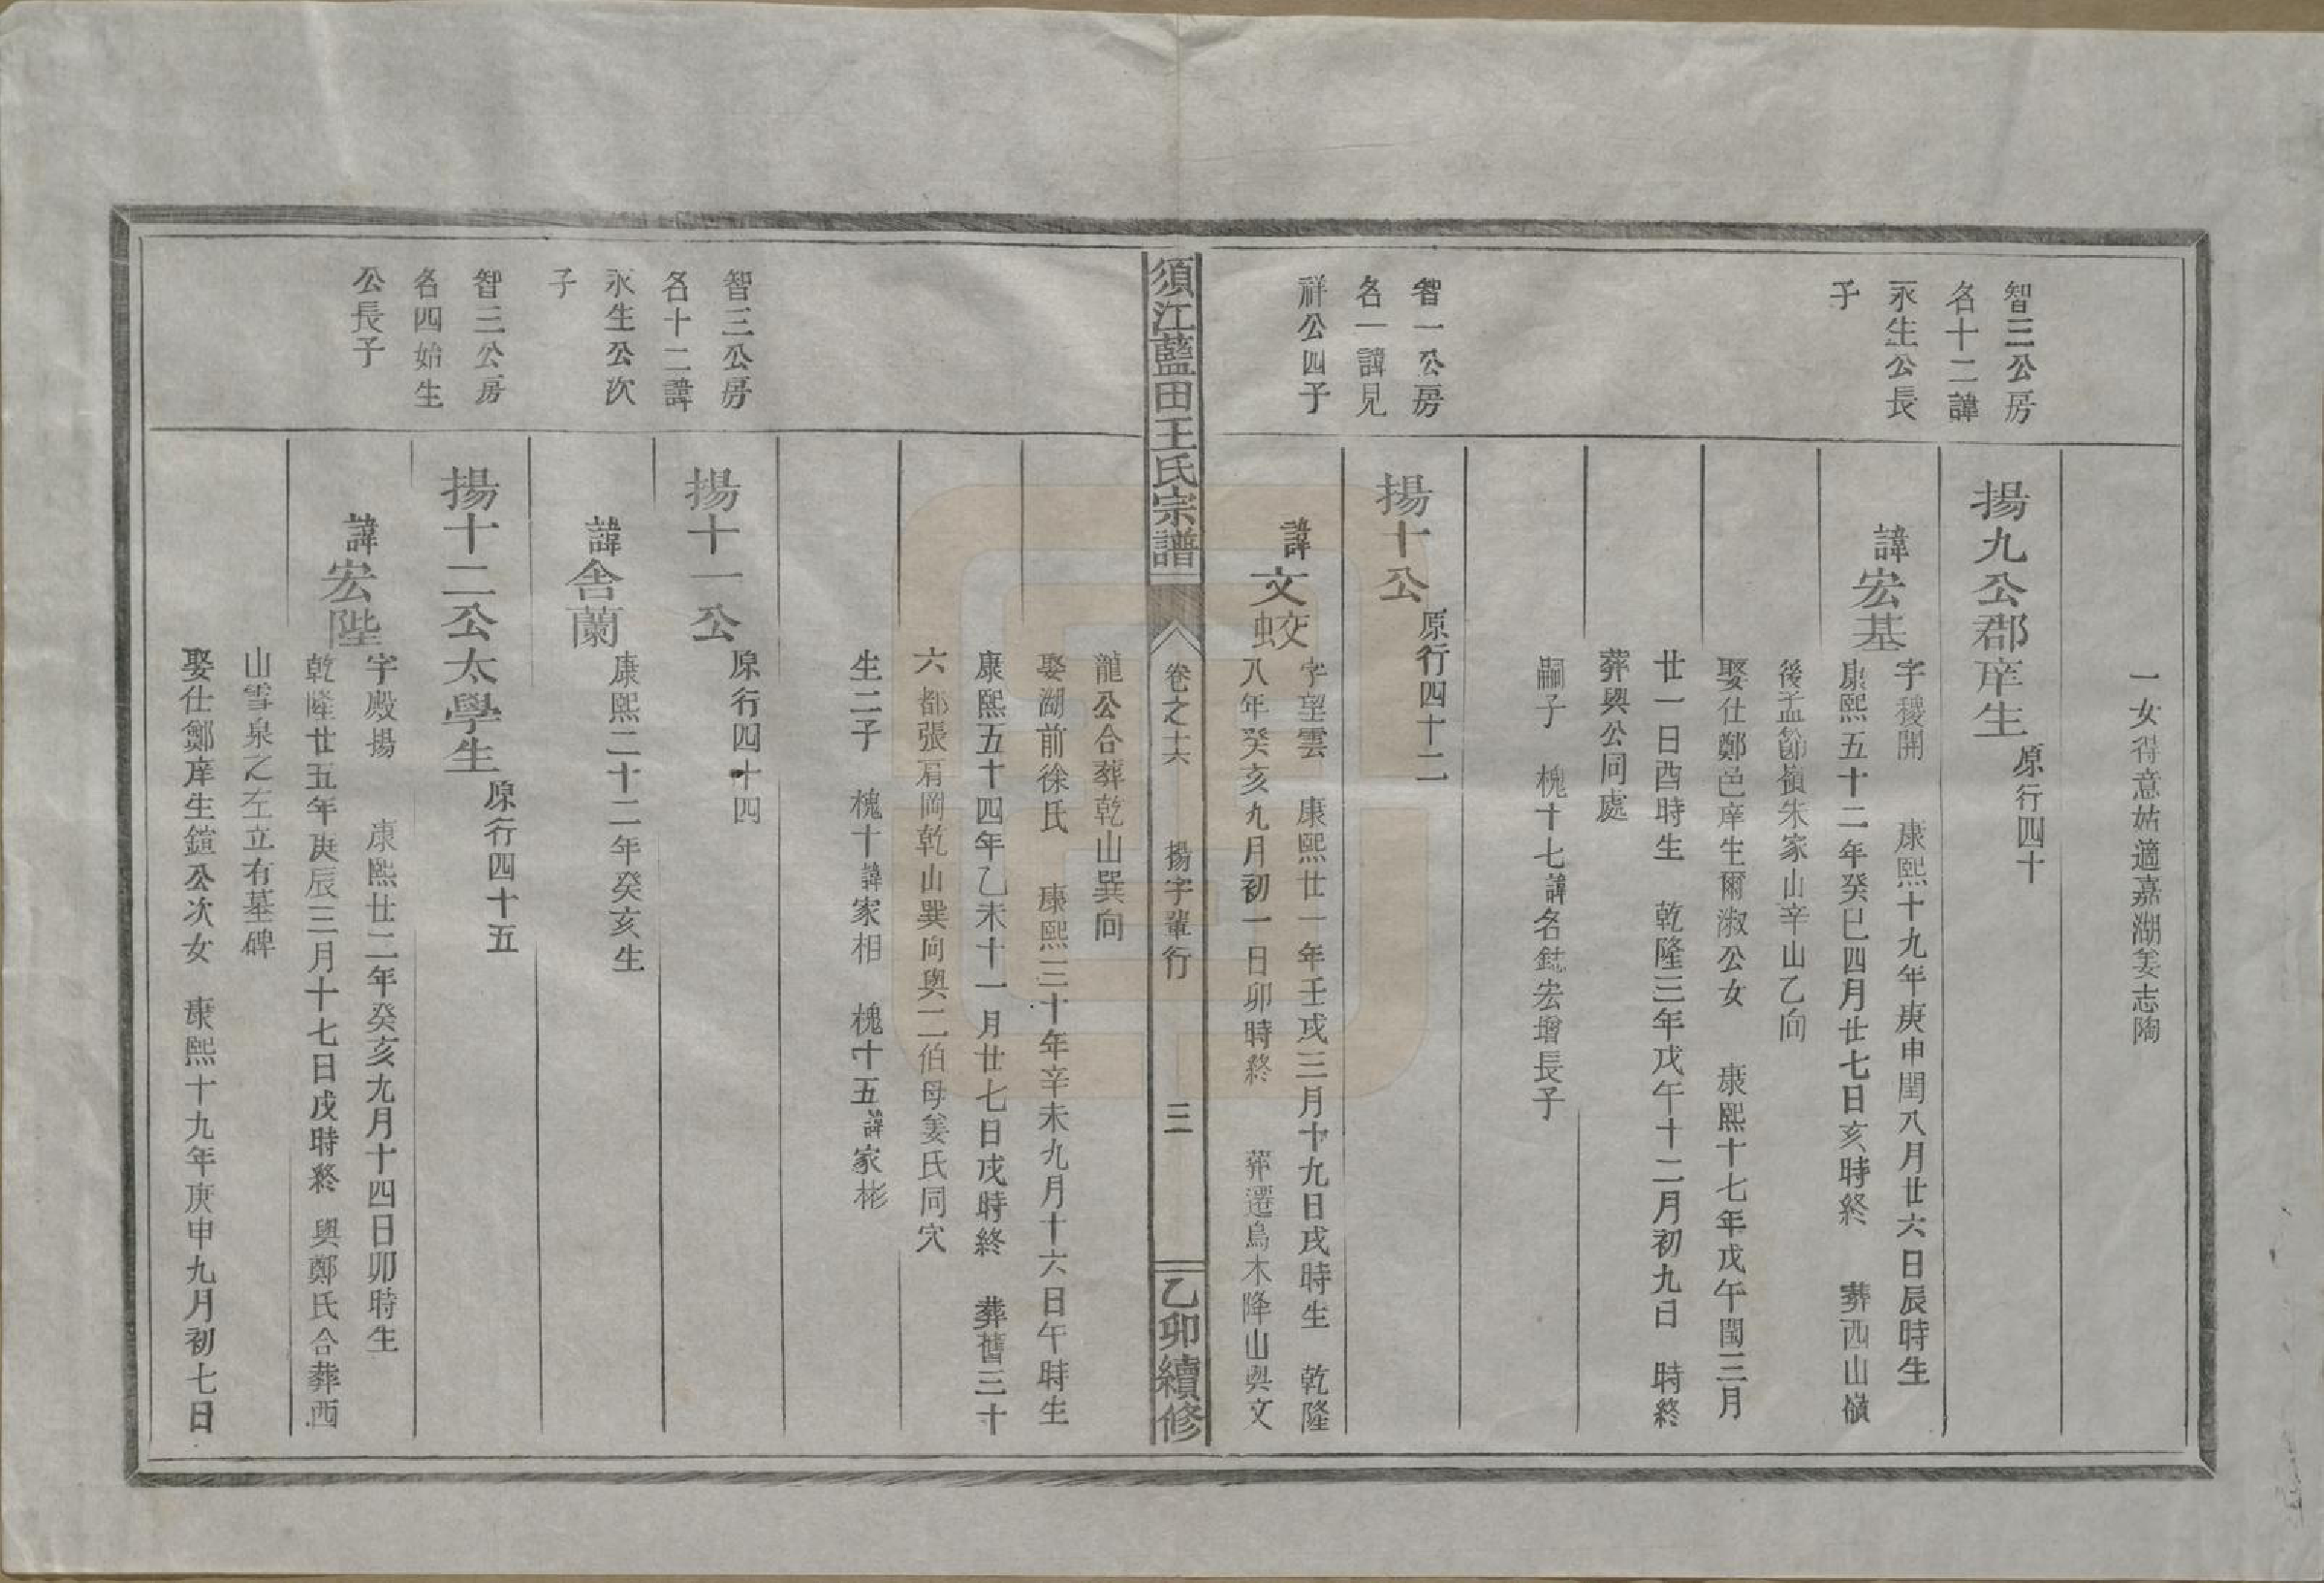 一女得意姑適嘉湖姜志陶
智三公房
名十二諱
永生公長
子
揚九公郡庠生 原行四十
諱宏基
字稷開 康熙十九年庚申閏八月廿六日辰時生
康熙五十二年癸巳四月廿七日亥時終 葬西山嶺
後孟節嶺朱家山辛山乙向
娶仕鄭邑庠生爾淑公女 康熙十七年戊午閏三月
廿一日酉時生 乾隆三年戊午十二月初九日 時終
葬與公同處
嗣子 槐十七諱名鋕宏增長子
智一公房
名一諱見
祥公四子
揚十公 原行四十二
諱文蛟
字望雲 康熙廿一年壬戌三月十九日戌時生 乾隆
八年癸亥九月初一日卯時終 葬遷烏木降山與文
須江藍田王氏宗譜 卷之十六 揚字輩行 三 乙卯續修
龍公合葬乾山巽向
娶湖前徐氏 康熙三十年辛未九月十六日午時生
康熙五十四年乙未十一月廿七日戌時終 葬舊三十
六都張肩岡乾山巽向與二伯母姜氏同穴
生二子 槐十諱家相 槐十五諱家彬
智三公房
名十二諱
永生公次
子
揚十一公 原行四十四
諱舍蘭
康熙二十二年癸亥生
智三公房
名四始生
公長子
揚十二公太學生 原行四十五
諱宏陛
字殿揚 康熙廿二年癸亥九月十四日卯時生
乾隆廿五年庚辰三月十七日戌時終 與鄭氏合葬西
山雪泉之左立有墓碑
娶仕鄭庠生鎧公次女 康熙十九年庚申九月初七日